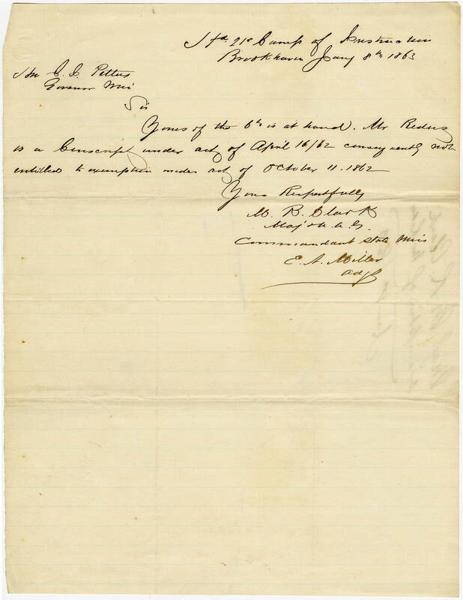 Hd Qrs Camp of Instruction
Brookhaven Jany 8th 1863
J. J. Pettus
Governor Miss
Sir
Yours of the 6th is at hand. Mr Redus
is a Conscript under act of April 16/62 consequently not
entitled to exemption under act of October 11. 1862
Yours Respectfully
M. B. Clark
Maj &
Commandant State Miss
E. A. Miller
Adjt